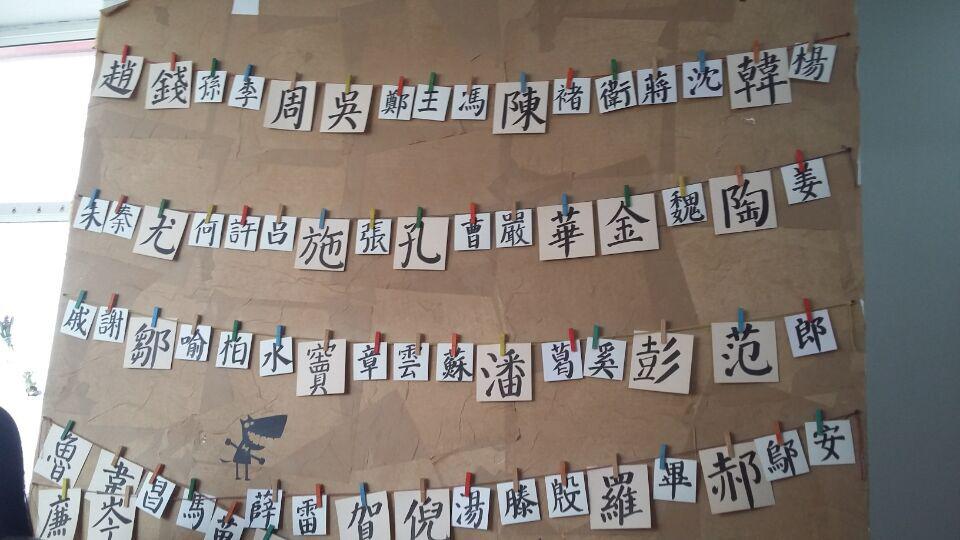 趙錢孫李周吳鄭王馮陳褚衛蔣沈韓楊
朱秦尤何許呂施張孔曹嚴華金魏陶姜
戚謝鄒喻柏水竇章雲蘇潘葛奚彭范郎
魯韋昌馬苗薛雷賀倪湯滕殷羅畢郝鄔安
廉岑